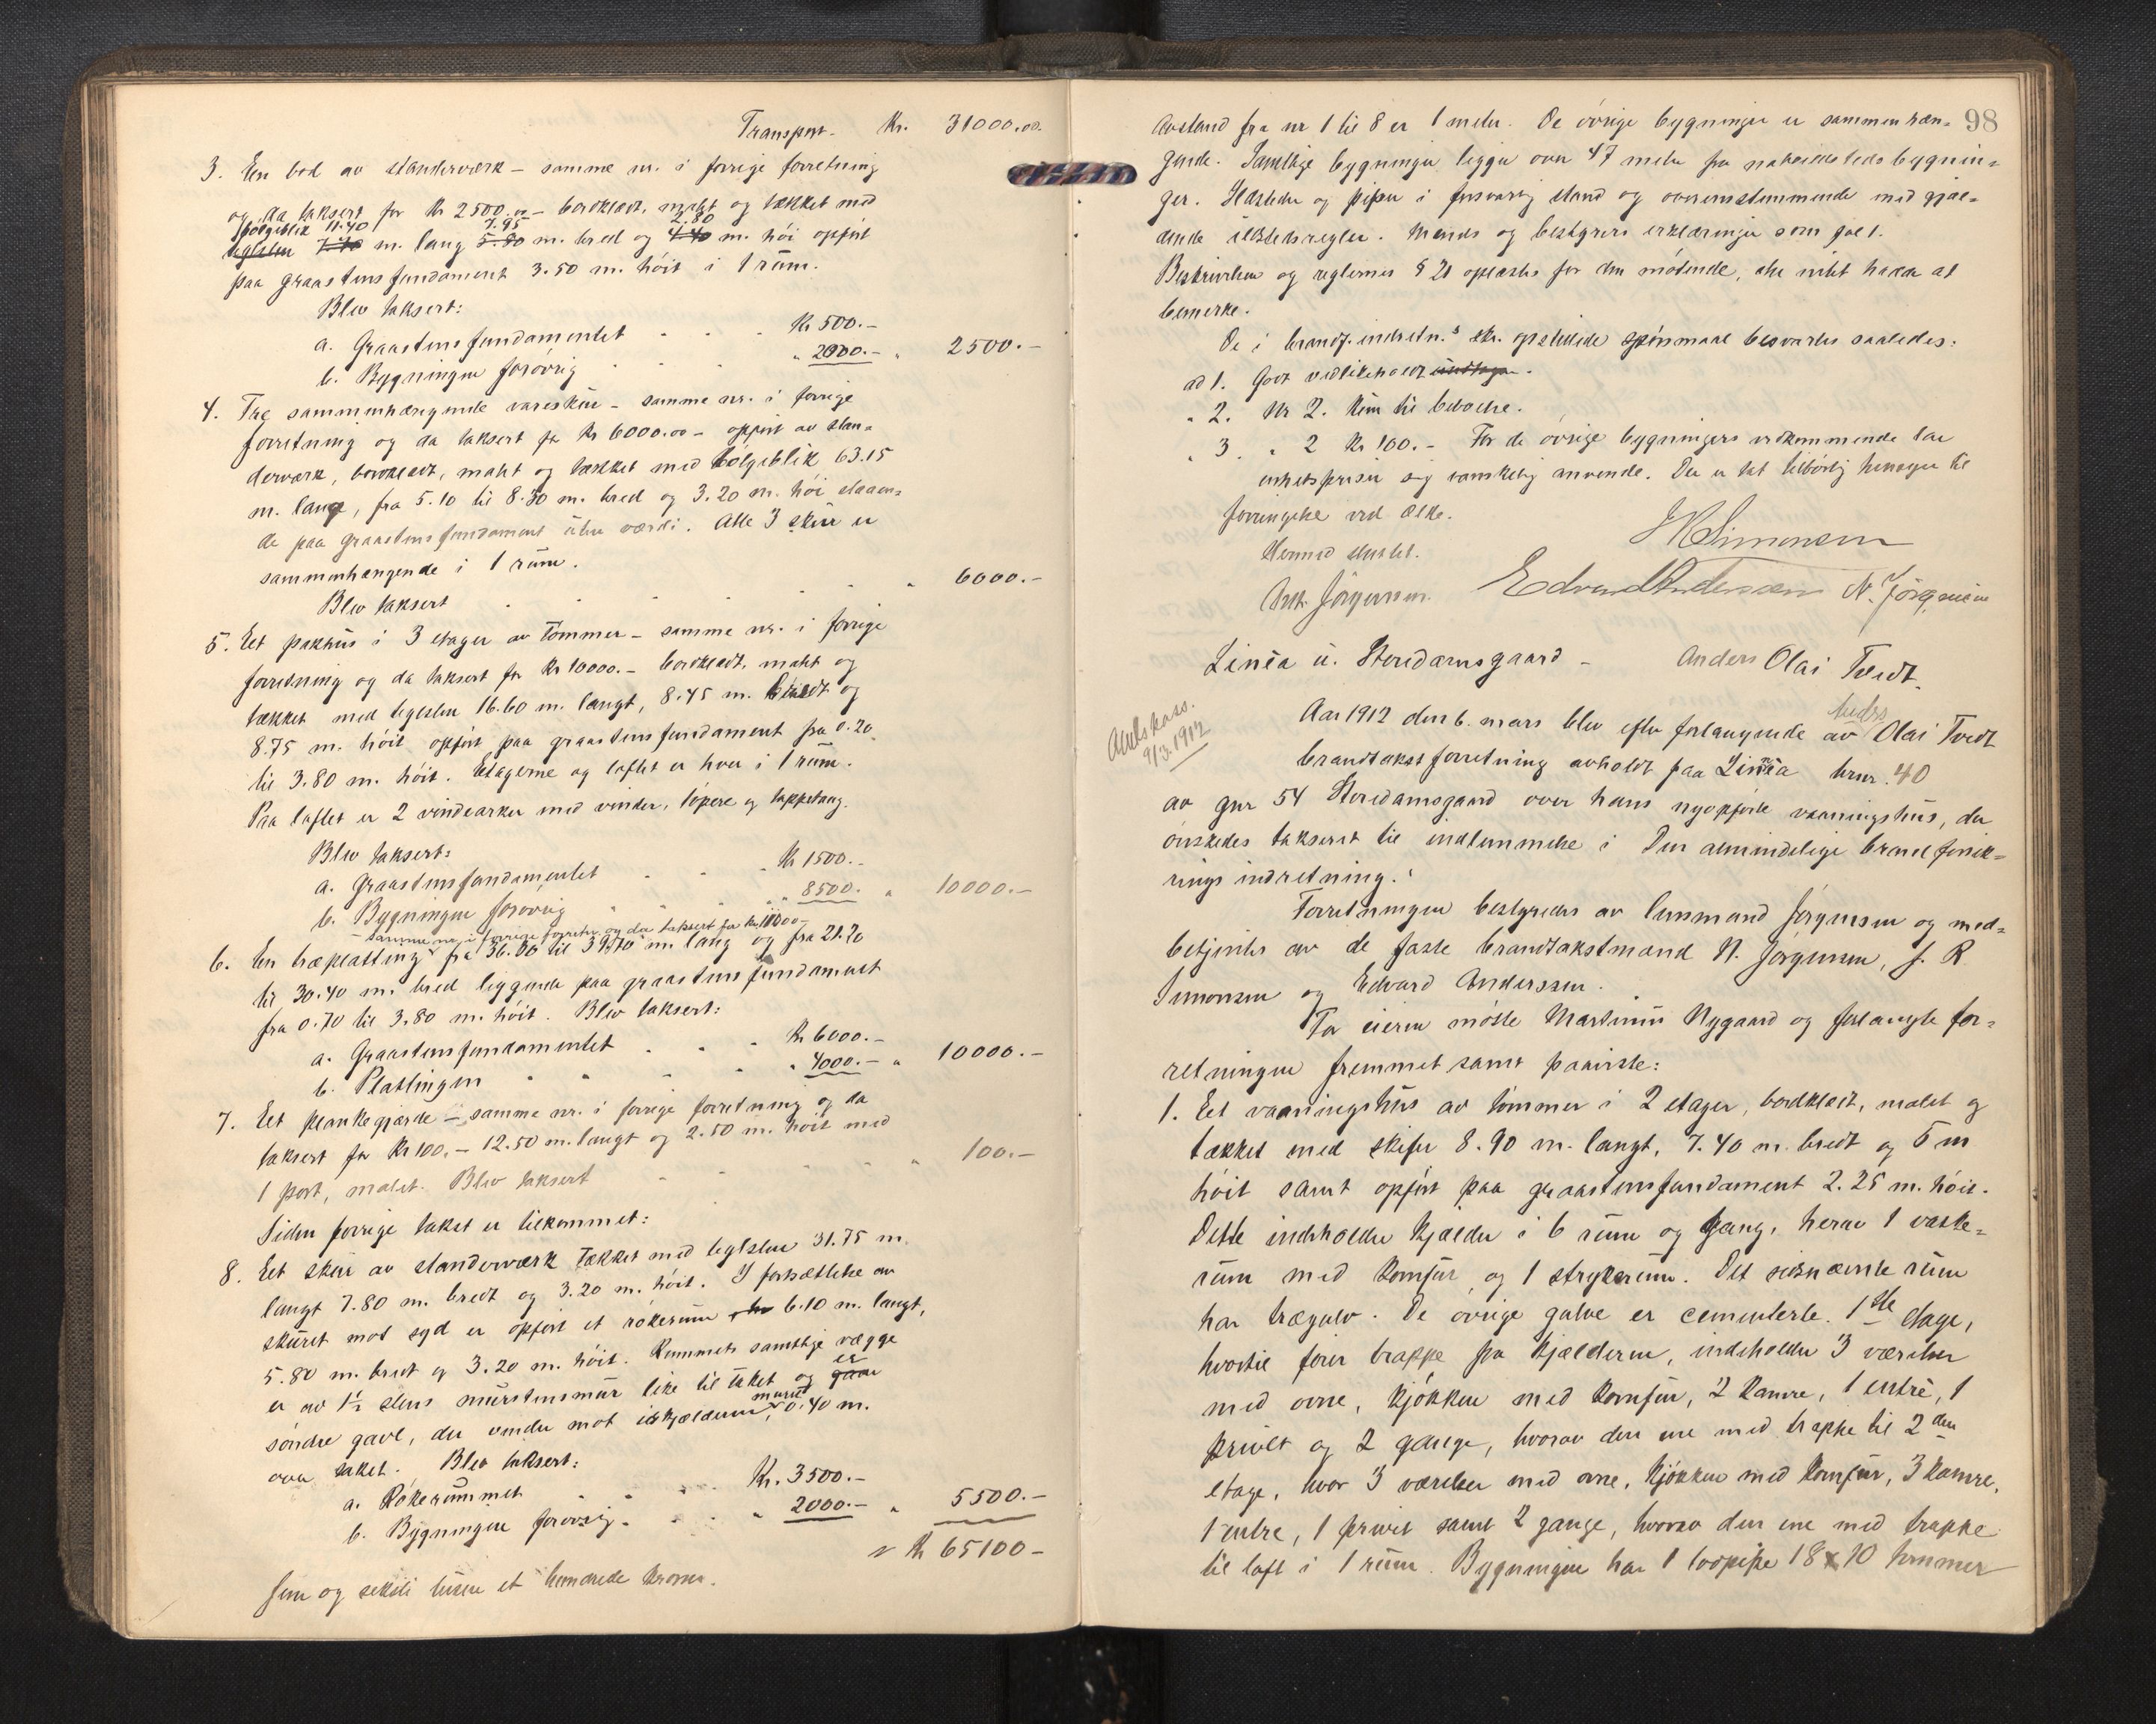 Transport - Kr. 31000.00.
3. En bod av standerværk - samme nr. i forrige forretning
og da taksert for Kr 2500.00 - bordklædt, malt og tækket med
bølgeblik 11.40 7.95 2.80
teglsten 7.40 m. lang 5.80 m. bred og 4.40 m. høi opført
paa graastensfundament 3.50 m. høit i 1 rum.
Blev taksert:
a. Graastensfundamentet Kr 500.-
b. Bygningen forøvrig " 2000.- " 2500.-
4. Tre sammenhængende vareskur - samme nr. i forrige
forretning og da taksert for Kr 6000.00 - opført av stan=
derværk, bordklædt, malt og tækket med bølgeblik 63.15
m. lange, fra 5.10 til 8.30 m. bred og 3.20 m. høi staaen=
de paa graastensfundament uten værdi. Alle 3 skur er
sammenhængende i 1 rum.
Blev taksert " 6000.-
5. Et pakhus i 3 etager av tømmer - samme nr. i forrige
forretning og da taksert for Kr 10000.- bordklædt, malt og
tækket med teglsten 16.60 m. langt, 8.45 m. bredt og
8.75 m. høit opført paa graastensfundament fra 0.20
til 3.80 m. høit. Etagerne og loftet er hver i 1 rum.
Paa loftet er 2 vindearker med vinder, løpere og tappetaug.
Blev taksert:
a. Graastensfundamentet Kr 1500.-
b. Bygningen forøvrig " 8500. " 10000.-
samme nr. i forrige forretn. og da taksert for Kr 10000-
6. En træplatting fra 36.00 til 39.70 m. lang og fra 21.20
til 30.40 m. bred liggende paa graastensfundament
fra 0.70 til 3.80 m. høit. Blev taksert:
a. Graastensfundamentet Kr 6000.-
b. Plattingen " 4000.- " 10000.-
7. Et plankegjærde - samme nr. i forrige forretning og da
taksert for Kr 100.- 12.50 m. langt og 2.50 m. høit med
1 port, malet. Blev taksert " 100.-
Siden forrige takst er tilkommet:
8. Et skur av standerværk tækket med teglsten 31.75 m.
langt 7.80 m. bredt og 3.20 m. høit. I fortsættelse av
skuret mot syd er opført et røkerum 6.10 m. langt,
5.80 m. bredt og 3.20 m. høit. Rummets samtlige vægge
er av 1½ stens murstensmur like til taket og er gaar
søndre gavl, der vender mot iskjælderen, muret 0.40 m.
over taket. Blev taksert:
a. Røkerummet Kr. 3500.-
b. Bygningen forøvrig " 2000.- " 5500.-
Kr 65100-
Fem og seksti tusen et hundrede kroner.
98
Avstand fra nr 1 til 8 er 1 meter. De øvrige bygninger er sammenhæn=
gende. Samtlige bygninger ligger over 47 meter fra naboeiendsteds bygnin=
ger. Ildsteder og piper i forsvarlig stand og overensstemmende med gjæl=
dende ildstedsregler. Mænds og bestyrers erklæringer som fol 1.
Beskrivelsen og reglernes § 21 oplæstes for den møtende, der intet hadde at
bemerke.
De i brandf. indretn.s skr. opstillede spørsmaal besvartes saaledes:
ad 1. Godt vedlikeholdt.
" 2. Nr 2. Kun til beboelse.
" 3. " 2 Kr 100.- For de øvrige bygningers vedkommende lar
enhetspriser sig vanskelig anvende. Der er tat tilbørlig hensyn til
forringelse ved ælde.
Hermed sluttet.
J R Simonsen
Ant. Jørgensen. Edvard Anderssen N. Jørgensen
Linea u. Stordamsgaard - Anders Olai Tvedt.
Anmeldtass.
9/3.1912
Anders
Aar 1912 den 6. mars blev efter forlangende av Olai Tvedt
brandtakstforretning avholdt paa Linea brnr. 40
av gnr 54 Stordamsgaard over hans nyopførte vaaningshus, der
ønskedes taksert til indlemmelse i Den almindelige brandforsik=
ringsindretning.
Forretningen bestyredes av lensmand Jørgensen og med=
betjentes av de faste brandtakstmænd N. Jørgensen, J. R.
Simonsen og Edvard Anderssen.
For eieren møtte Martinus Nygaard og forlangte for=
retningen fremmet samt paaviste:
1. Et vaaningshus av tømmer i 2 etager, bordklædt, malet og
tækket med skifer 8.90 m. langt, 7.40 m. bredt og 5 m
høit samt opført paa graastensfundament 2.25 m. høit.
Dette indeholder kjælder i 6 rum og gang, herav 1 vaske=
rum med komfur og 1 strykerum. Det sidstnævnte rum
har trægulv. De øvrige gulve er cementerte. 1ste etage,
hvortil fører trappe fra kjælderen, indeholder 3 værelser
med ovne, kjøkken med komfur, 2 kamre, 1 entré, 1
privét og 2 gange, hvorav den ene med trappe til 2den
etage, hvor 3 værelser med ovne, kjøkken med komfur, 3 kamre,
1 entre, 1 privét samt 2 gange, hvorav den ene med trappe
til loft i 1 rum. Bygningen har 1 topipe 18 x 10 tommer